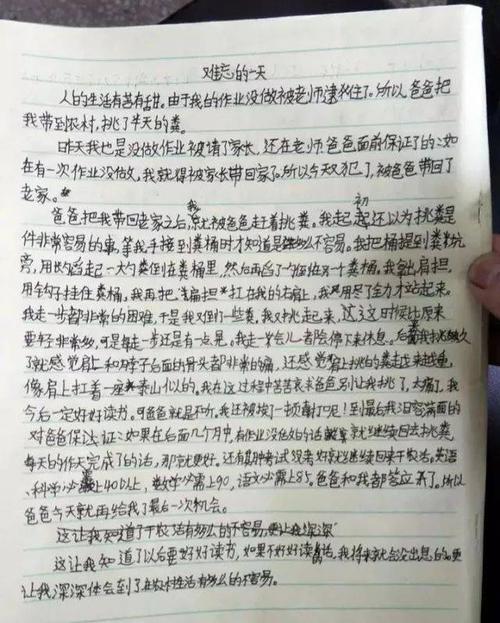 难忘的一天
人的生活有苦有甜。由于我的作业没做被老师逮住了。所以爸爸把
我带到农村,挑了半天的粪。
昨天我也是没做作业被请了家长,还在老师爸爸面前保证了的:如
在有一次作业没做,我就得被家长带回家了。所以今天又犯了,被爸爸带回了
老家。
爸爸把我带回老家之后,我就被爸爸赶着挑粪。我起初还以为挑粪是
件非常容易的事,等我手接到粪桶时才知道是多么不容易。我把桶提到粪坑
旁,用瓢舀起一大勺粪倒在粪桶里,然后再舀了勺倒在另一个粪桶。我拿出肩担,
用钩子挂住粪桶。我再把扁担扛在我的右肩上,我用尽了全力才站起来。
我走一步都非常的困难,于是我又倒了一些粪。我又挑走起来,这时候比原来
要轻非常多,可是每走一步还是有一点晃。我走一会儿都会停下来休息。后我挑久
了就感觉肩上和脖子台面的骨头都非常的痛,还感觉肩上挑的粪走来越重,
像肩上扛着一座泰山似的。我在这过程中苦苦哀求爸爸别让我挑了,太痛了,我
今后一定好好读书。可爸爸就是不听,我还被挨了一顿毒打呢!到最后我泪容满面的
对爸爸保证:如果在后面几个月中,有作业没做的话就继续回去挑粪,
每天的作天完成了的话,那就更好。还有其时考试没考好就继续回来干农活。英语、
科学必需上40以上,数学必需上90,语文必需上85。爸爸和我都答应了。所以
爸爸今天就再给我了最后一次机会。
这让我知道了干农活有多么的不容易,更让我深深
这让我知道了以后要好好读书,如果不好好读书话,我将来就会没出息的。更
让我深深体会到了农村生活有多么的不容易。